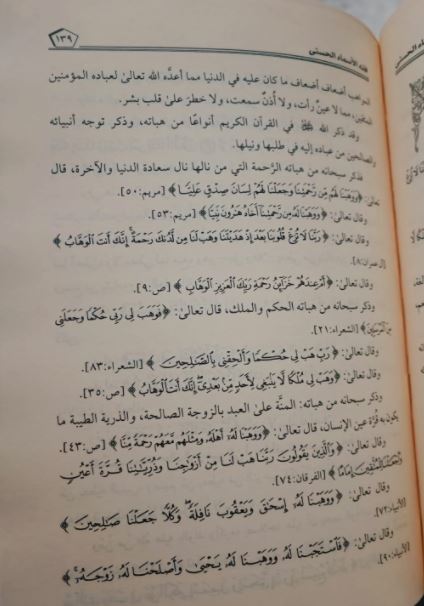 ١٣٩
فقه الأسماء الحسنى
المواهب أضعاف أضعاف ما كان عليه في الدنيا مما أعدَّه الله تعالىٰ لعباده المؤمنين
المتقين، مما لا عينٌ رأت، ولا أذنٌ سمعت، ولا خطرَ علىٰ قلب بشر.
وقد ذكر الله ﷻ في القرآن الكريم أنواعًا من هباته، وذكر توجه أنبيائه
والصالحين من عباده إليه في طلبها ونيلها.
فذكر سبحانه من هباته الرَّحمة التي من نالها نال سعادة الدنيا والآخرة، قال
تعالىٰ: ﴿وَوَهَبْنَا لَهُم مِّن رَّحْمَتِنَا وَجَعَلْنَا لَهُمْ لِسَانَ صِدْقٍ عَلِيًّا﴾ [مريم:٥٠].
وقال تعالىٰ: ﴿وَوَهَبْنَا لَهُ مِن رَّحْمَتِنَا أَخَاهُ هَارُونَ نَبِيًّا﴾ [مريم:٥٣].
وقال تعالىٰ: ﴿رَبَّنَا لَا تُزِغْ قُلُوبَنَا بَعْدَ إِذْ هَدَيْتَنَا وَهَبْ لَنَا مِن لَّدُنكَ رَحْمَةً إِنَّكَ أَنتَ الْوَهَّابُ﴾
[آل عمران:٨].
وقال تعالىٰ: ﴿أَمْ عِندَهُمْ خَزَائِنُ رَحْمَةِ رَبِّكَ الْعَزِيزِ الْوَهَّابِ﴾ [ص:٩].
وذكر سبحانه من هباته الحكم والملك، قال تعالىٰ: ﴿فَوَهَبَ لِي رَبِّي حُكْمًا وَجَعَلَنِي
مِنَ الْمُرْسَلِينَ﴾ [الشعراء:٢١].
وقال تعالىٰ: ﴿رَبِّ هَبْ لِي حُكْمًا وَأَلْحِقْنِي بِالصَّالِحِينَ﴾ [الشعراء:٨٣].
وقال تعالىٰ: ﴿وَهَبْ لِي مُلْكًا لَّا يَنبَغِي لِأَحَدٍ مِّن بَعْدِي إِنَّكَ أَنتَ الْوَهَّابُ﴾ [ص:٣٥].
وذكر سبحانه من هباته: المنَّة علىٰ العبد بالزوجة الصالحة، والذرية الطيبة ما
يكون به قُرَّة عين الإنسان، قال تعالىٰ: ﴿وَوَهَبْنَا لَهُ أَهْلَهُ وَمِثْلَهُم مَّعَهُمْ رَحْمَةً مِّنَّا﴾ [ص:٤٣].
وقال تعالىٰ: ﴿وَالَّذِينَ يَقُولُونَ رَبَّنَا هَبْ لَنَا مِنْ أَزْوَاجِنَا وَذُرِّيَّاتِنَا قُرَّةَ أَعْيُنٍ
وَاجْعَلْنَا لِلْمُتَّقِينَ إِمَامًا﴾ [الفرقان:٧٤].
وقال تعالىٰ: ﴿وَوَهَبْنَا لَهُ إِسْحَاقَ وَيَعْقُوبَ نَافِلَةً وَكُلًّا جَعَلْنَا صَالِحِينَ﴾
[الأنبياء:٧٢].
وقال تعالىٰ: ﴿فَاسْتَجَبْنَا لَهُ وَوَهَبْنَا لَهُ يَحْيَىٰ وَأَصْلَحْنَا لَهُ زَوْجَهُ﴾
[الأنبياء:٩٠].